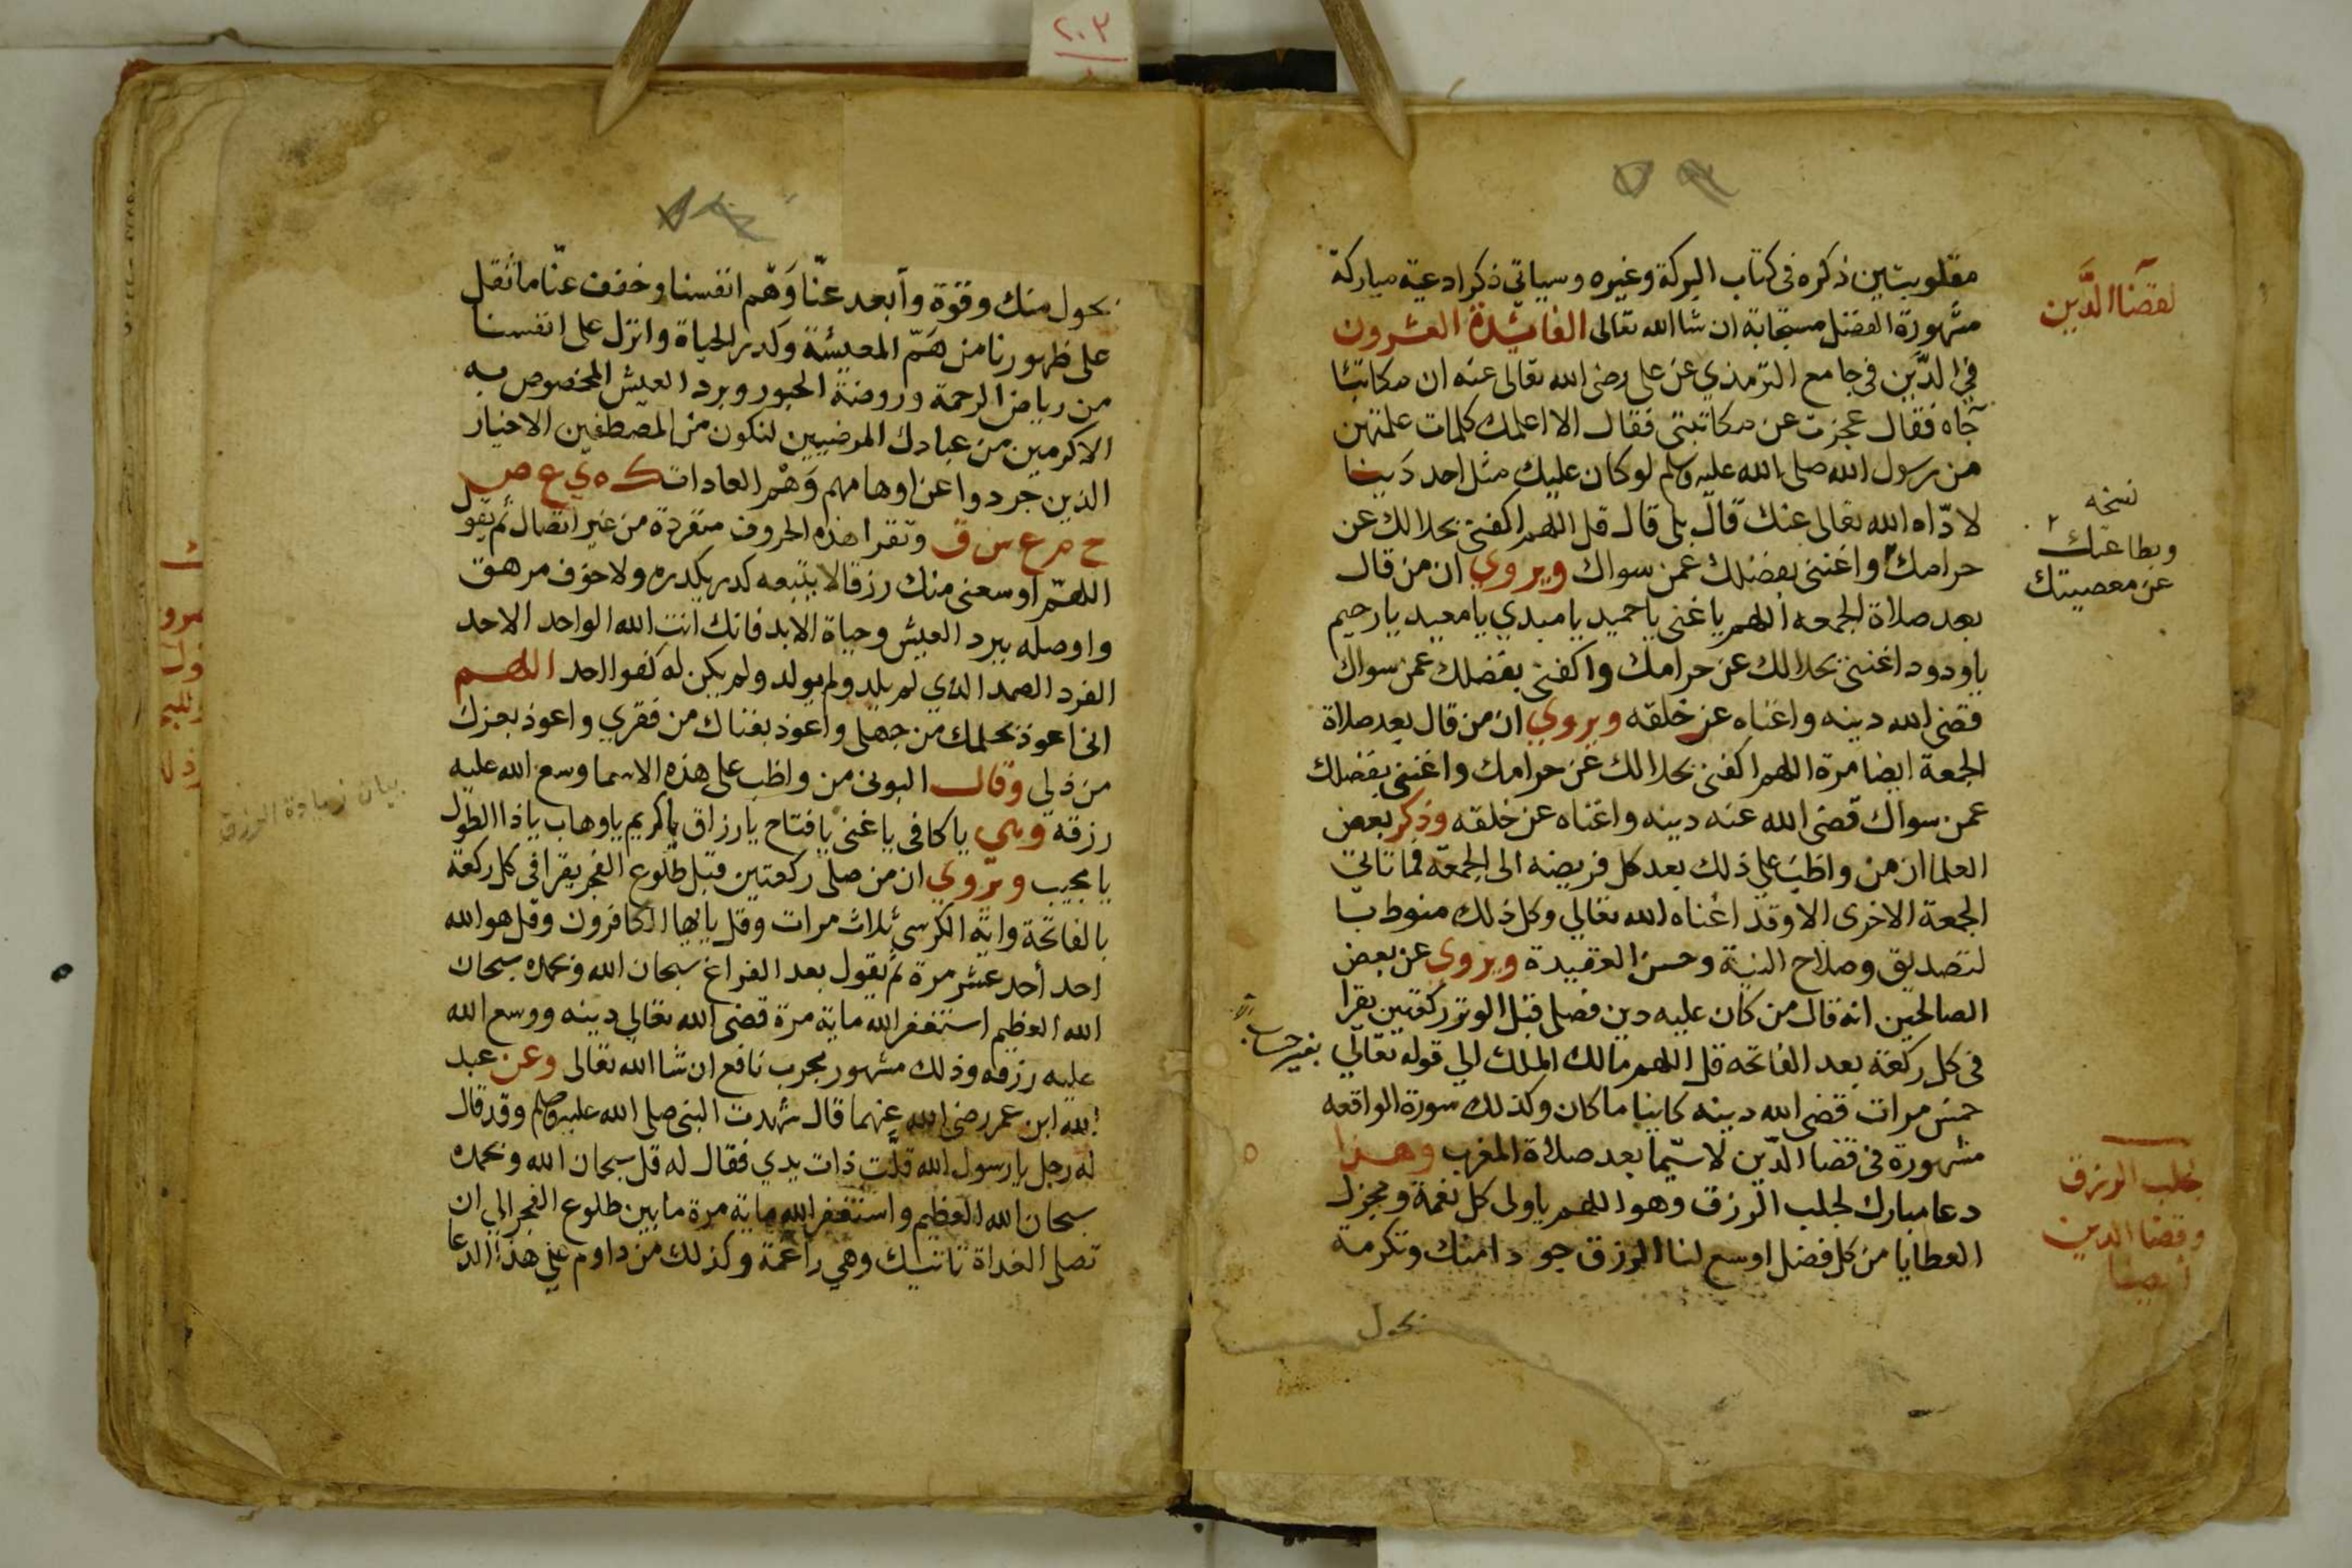 مقلوبتين ذكره فى كتاب البركة وغيره وسياتي ذكر ادعية مباركة
مشهورة الفضل مستجابة ان شا الله تعالى الفائدة العشرون
في الدَّين فى جامع الترمذي عن على رضى الله تعالى عنه ان مكاتبًا
جآه فقال عجزت عن مكاتبتى فقال الا اعلمك كلمات علمنهن
من رسول الله صلى الله عليه وسلم لو كان عليك مثل احد دَينا
لادّاه الله تعالى عنك قال بلى قال قل اللهم اكفنى بحلالك عن
حرامك واغننى بفضلك عمن سواك ويروي ان من قال
بعد صلاة الجمعه اللهم يا غنى يا حميد يا مبدي يا معيد يا رحيم
يا ودود اغننى بحلالك عن حرامك واكفنى بفضلك عمن سواك
قضى الله دينه واغناه عن خلقه ويروي ان من قال بعد صلاة
الجمعة ايضا مرة اللهم اكفنى بحلالك عن حرامك واغننى بفضلك
عمن سواك قضى الله عنه دينه واغناه عن خلقه وذكر بعض
العلما ان من واظب على ذلك بعد كل فريضه الى الجمعة فما تاتى
الجمعة الاخرى الا وقد اغناه الله تعالي وكل ذلك منوط با
لتصديق وصلاح النية وحسن العقيدة ويروي عن بعض
الصالحين انه قال من كان عليه دين فصلى قبل الوتر ركعتين يقرا
فى كل ركعة بعد الفاتحه قل اللهم مالك الملك الي قوله تعالي بغير حساب
خمس مرات قضى الله دينه كاينا ما كان وكذلك سورة الواقعه
مشهورة فى قضا الدّين لاسيّما بعد صلاة المغرب وهذا
دعا مبارك لجلب الرزق وهو اللهم يا ولى كل نعمة ومجزل
العطايا من كل فضل اوسع لنا الرزق جودا منك وتكرمة
بحول
لقضا الدَّين
نسخه
وبطاعتك
عن معصيتك
لجلب الرزق
وقضا الدين
ايضا
بحول منك وقوة وأبعد عنّا وَهْم انفسنا وخفف عنّا ما اثقل
على ظهورنا من هَمّ المعيشة وكدر الحياة وانزل على انفسنا
من رياض الرحمة وروضة الحبور وبرد العيش المخصوص به
الاكرمين من عبادك المرضيين لنكون من المصطفين الاخيار
الذين جردوا عن اوهامهم وَهْم العادات ك ه ي ع ص
ح م ع س ق وتقرا هذه الحروف منفردة من غير اتصال ثم يقول
اللهمّ اوسعنى منك رزقا لا يتبعه كدر يكدره ولا خوف مرهق
واوصله ببرد العيش وحياة الابد فانك انت الله الواحد الاحد
الفرد الصمد الذي لم يلد ولم يولد ولم يكن له كفوا احد اللهم
انى اعوذ بحلمك من جهلى واعوذ بغناك من فقري واعوذ بعزك
من ذلي وقال البونى من واظب على هذه الاسما وسع الله عليه
رزقه وهي يا كافى يا غنى يا فتاح يا رزاق يا كريم يا وهاب يا ذا الطول
يا مجيب ويروي ان من صلى ركعتين قبل طلوع الفجر يقرا فى كل ركعة
بالفاتحة واية الكرسي ثلاث مرات وقل يا ايها الكافرون وقل هو الله
احد أحد عشر مرة ثم يقول بعد الفراغ سبحان الله وبحمده سبحان
الله العظيم استغفر الله ماية مرة قضى الله تعالي دينه ووسع الله
عليه رزقه وذلك مشهور مجرب نافع ان شا الله تعالى وعن عبد
الله ابن عمر رضى الله عنهما قال شهدت النبى صلى الله عليه وسلم وقد قال
له رجل يا رسول الله قلّت ذات يدي فقال له قل سبحان الله وبحمده
سبحان الله العظيم واستغفر الله ماية مرة ما بين طلوع الفجر الي ان
تصلى الغداة تاتيك وهي راغمة وكذلك من داوم على هذا الدعا
بيان زيادة الرزق
٢٠٣